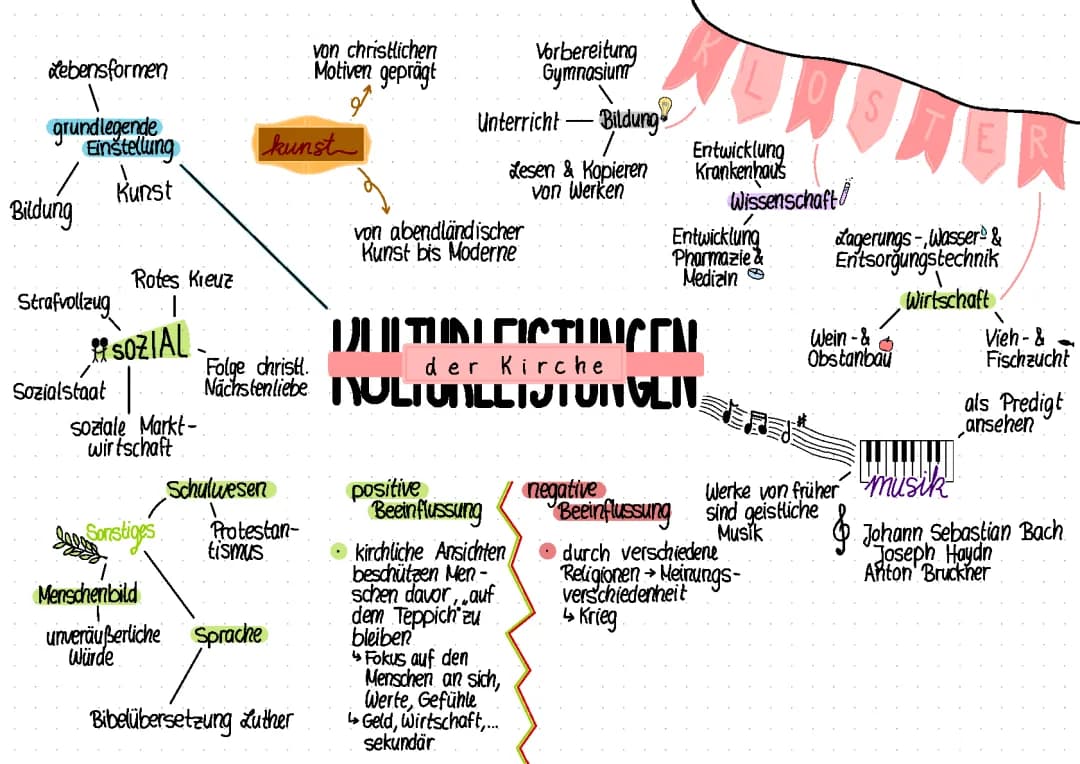 KLOSTER
Lebensformen
grundlegende
Einstellung
Bildung
Kunst
kunst
von christlichen
Motiven geprägt
von abendländischer
Kunst bis Moderne
Vorbereitung
Gymnasium
Unterricht
Bildung
Lesen & Kopieren
von Werken
Entwicklung
Krankenhaus
Wissenschaft
Entwicklung
Pharmazie &
Medizin
Lagerungs-, Wasser- &
Entsorgungstechnik
Wirtschaft
Wein- &
Obstanbau
Vieh- &
Fischzucht
Rotes Kreuz
Strafvollzug
SOZIAL
Sozialstaat
Folge christl.
Nächstenliebe
soziale Markt-
wirtschaft
KULTURLEISTUNGEN
der Kirche
als Predigt
ansehen
musik
Werke von früher
sind geistliche
Musik
Johann Sebastian Bach
Joseph Haydn
Anton Bruckner
Schulwesen
Sonstiges
Protestan-
tismus
Menschenbild
unveräußerliche
Würde
Sprache
Bibelübersetzung Luther
positive
Beeinflussung
kirchliche Ansichten
beschützen Men-
schen davor, „auf
dem Teppich" zu
bleiben
↳ Fokus auf den
Menschen an sich,
Werte, Gefühle
↳ Geld, Wirtschaft,...
sekundär
negative
Beeinflussung
durch verschiedene
Religionen → Meinungs-
verschiedenheit
↳ Krieg